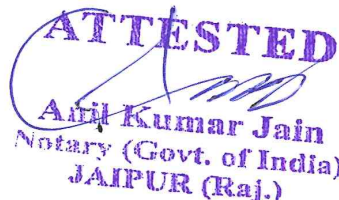 ATTESTED
Anil Kumar Jain
Notary (Govt. of India)
JAIPUR (Raj.)